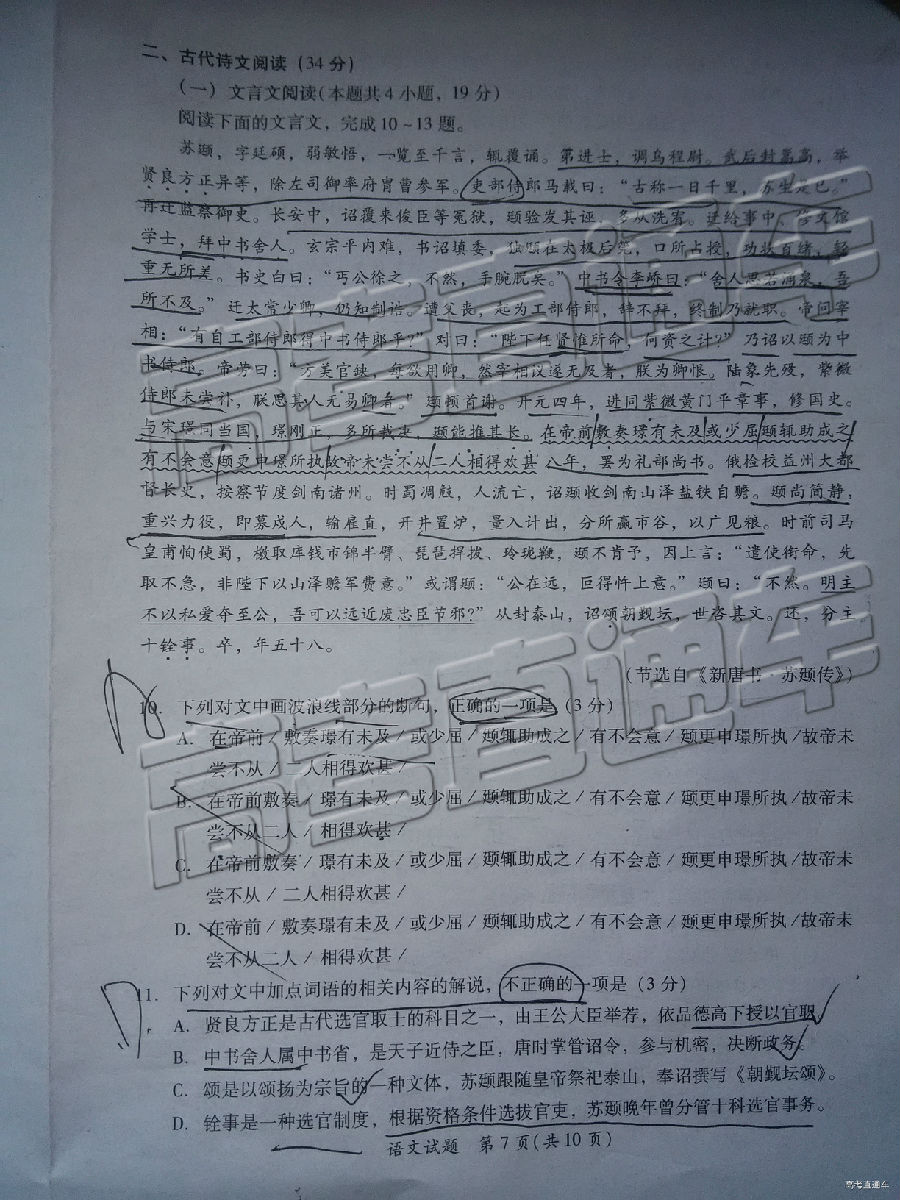 二、古代诗文阅读（34分）
（一）文言文阅读（本题共4小题，19分）
阅读下面的文言文，完成10~13题。
苏颋，字廷硕，弱敏悟，一览至千言，辄覆诵。第进士，调乌程尉。武后封嵩高，举
贤良方正异等，除左司御率府胄曹参军。吏部侍郎马载曰：“古称一日千里，苏生是已。”
再迁监察御史。长安中，诏覆来俊臣等冤狱，颋验发其诬，多从洗宥。迁给事中、修文馆
学士，拜中书舍人。玄宗平内难，书诏填委，独颋在太极后阁，口所占授，功状百绪，轻
重无所差。书史白曰：“丐公徐之，不然，手腕脱矣。”中书令李峤曰：“舍人思若涌泉，吾
所不及。”迁太常少卿，仍知制诰。遭父丧，起为工部侍郎，辞不拜，终制乃就职。帝问宰
相：“有自工部侍郎得中书侍郎乎？”对曰：“陛下任贤惟所命，何资之计？”乃诏以颋为中
书侍郎。帝劳曰：“方美官缺，每欲用卿，然宰相议遂无及者，朕为卿恨。陆象先殁，紫微
侍郎未尝补，朕思其人无易卿者。”颋顿首谢。开元四年，进同紫微黄门平章事，修国史。
与宋璟同当国，璟刚正，多所裁决，颋能推其长。在帝前敷奏璟有未及或少屈颋辄助成之
有不会意颋更申璟所执故帝未尝不从二人相得欢甚 八年，罢为礼部尚书。俄检校益州大都
督长史，按察节度剑南诸州。时蜀凋敝，人流亡，诏颋收剑南山泽盐铁自赡。颋尚简静，
重兴力役，即募戍人，输雇直，开井置炉，量入计出，分所赢市谷，以广见粮。时前司马
皇甫恂使蜀，檄取库钱市锦半臂、琵琶捍拨、玲珑鞭，颋不肯予，因上言：“遣使衔命，先
取不急，非陛下以山泽赡军费意。”或谓颋：“公在远，叵得忤上意。”颋曰：“不然。明主
不以私爱夺至公，吾可以远近废忠臣节邪？”从封泰山，诏颂朝觐坛，世咨其文。还，分主
十铨事。卒，年五十八。
（节选自《新唐书·苏颋传》）
10. 下列对文中画波浪线部分的断句，正确的一项是（3分）
A．在帝前／敷奏璟有未及／或少屈／颋辄助成之／有不会意／颋更申璟所执／故帝未
尝不从／二人相得欢甚／
B．在帝前敷奏／璟有未及／或少屈／颋辄助成之／有不会意／颋更申璟所执／故帝未
尝不从二人／相得欢甚／
C．在帝前敷奏／璟有未及／或少屈／颋辄助成之／有不会意／颋更申璟所执／故帝未
尝不从／二人相得欢甚／
D．在帝前／敷奏璟有未及／或少屈／颋辄助成之／有不会意／颋更申璟所执／故帝未
尝不从二人／相得欢甚／
11. 下列对文中加点词语的相关内容的解说，不正确的一项是（3分）
A．贤良方正是古代选官取士的科目之一，由王公大臣举荐，依品德高下授以官职。
B．中书舍人属中书省，是天子近侍之臣，唐时掌管诏令，参与机密，决断政务。
C．颂是以颂扬为宗旨的一种文体，苏颋跟随皇帝祭祀泰山，奉诏撰写《朝觐坛颂》。
D．铨事是一种选官制度，根据资格条件选拔官吏，苏颋晚年曾分管十科选官事务。
语文试题 第7页（共10页）
高考直通车
高考直通车
高考直通车